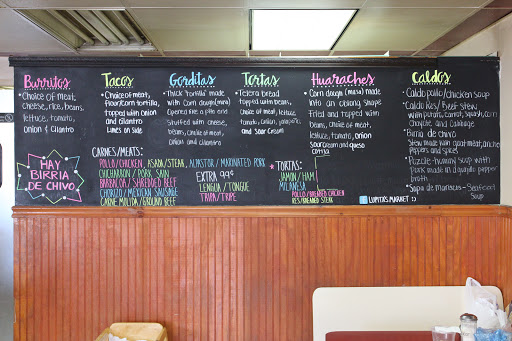 Burritos
• Choice of meat,
cheese, rice, beans,
lettuce, tomato,
onion & cilantro
Tacos
• Choice of meat,
flour/corn tortilla,
topped with onion
and cilantro
Limes on side
Gorditas
• Thick "tortilla" made
with corn dough (masa)
Opened like a pita and
Stuffed with cheese
beans, choice of meat,
onion and cilantro
Tortas
• Telera bread
topped with beans,
choice of meat,
lettuce, tomato, onion,
and sour cream
Huaraches
• Corn dough (masa) made
into an oblong shape
Fried and topped with
beans, choice of meat,
lettuce, tomato, onion
sour cream and queso
Caldos
Caldo pollo/chicken soup
Caldo Res/Beef stew
with potato, carrot, squash, corn
chayote, and cabbage
Birria de chivo
Stew made with goat meat,
peppers and spices
broth
Sopa de mariscos - Seafood
Soup
HAY
BIRRIA
DE CHIVO
CARNES/MEATS:
POLLO/CHICKEN, ASADA/STEAK, ALPASTOR/MARINATED PORK
CHICHARRON/PORK SKIN
BARBACOA/SHREDDED BEEF
CHORIZO/MEXICAN SAUSAGE
CARNE MOLIDA/GROUND BEEF
EXTRA 99¢
LENGUA/TONGUE
TRIPA/TRIPE
* TORTAS:
JAMON/HAM
MILANESA
POLLO/BREADED CHICKEN
RES/BREADED STEAK
LUPITAS.MARKET :)